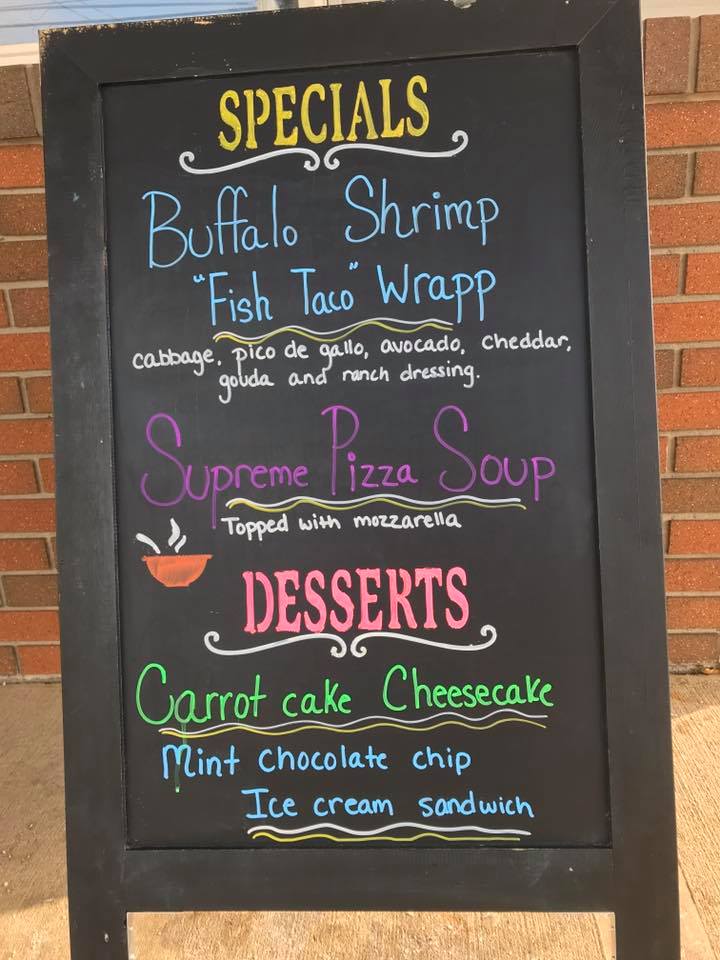 SPECIALS
Buffalo Shrimp
"Fish Taco" Wrapp
cabbage, pico de gallo, avocado, cheddar,
gouda and ranch dressing.
Supreme Pizza Soup
Topped with mozzarella
DESSERTS
Carrot cake Cheesecake
Mint chocolate chip
Ice cream sandwich